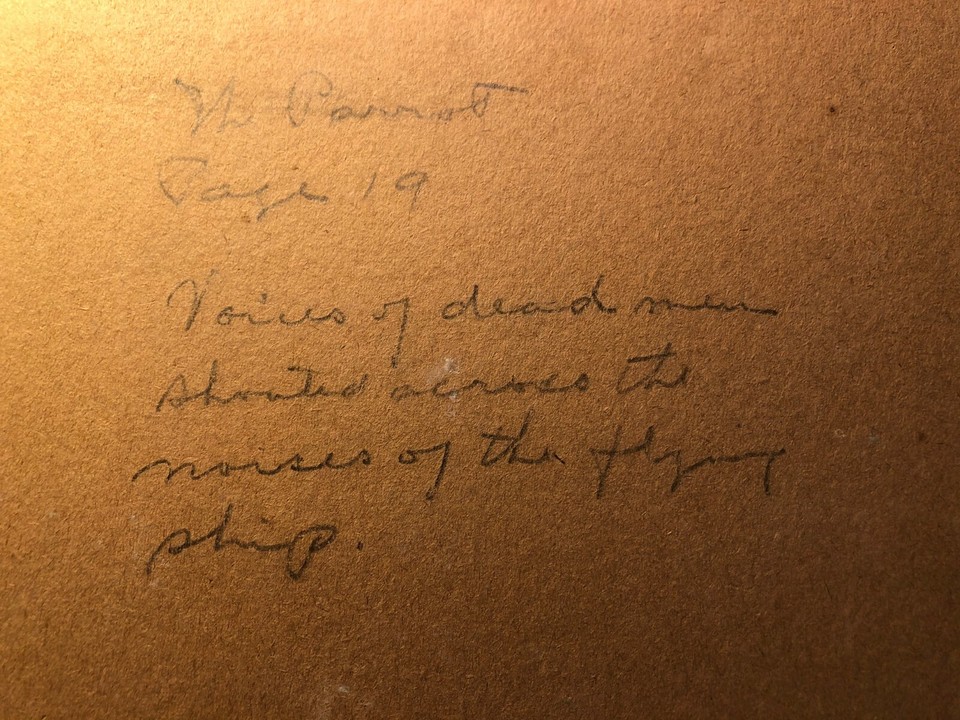 The Parrot
Page 19
Voices of dead men
shouted across the
noises of the flying
ship.